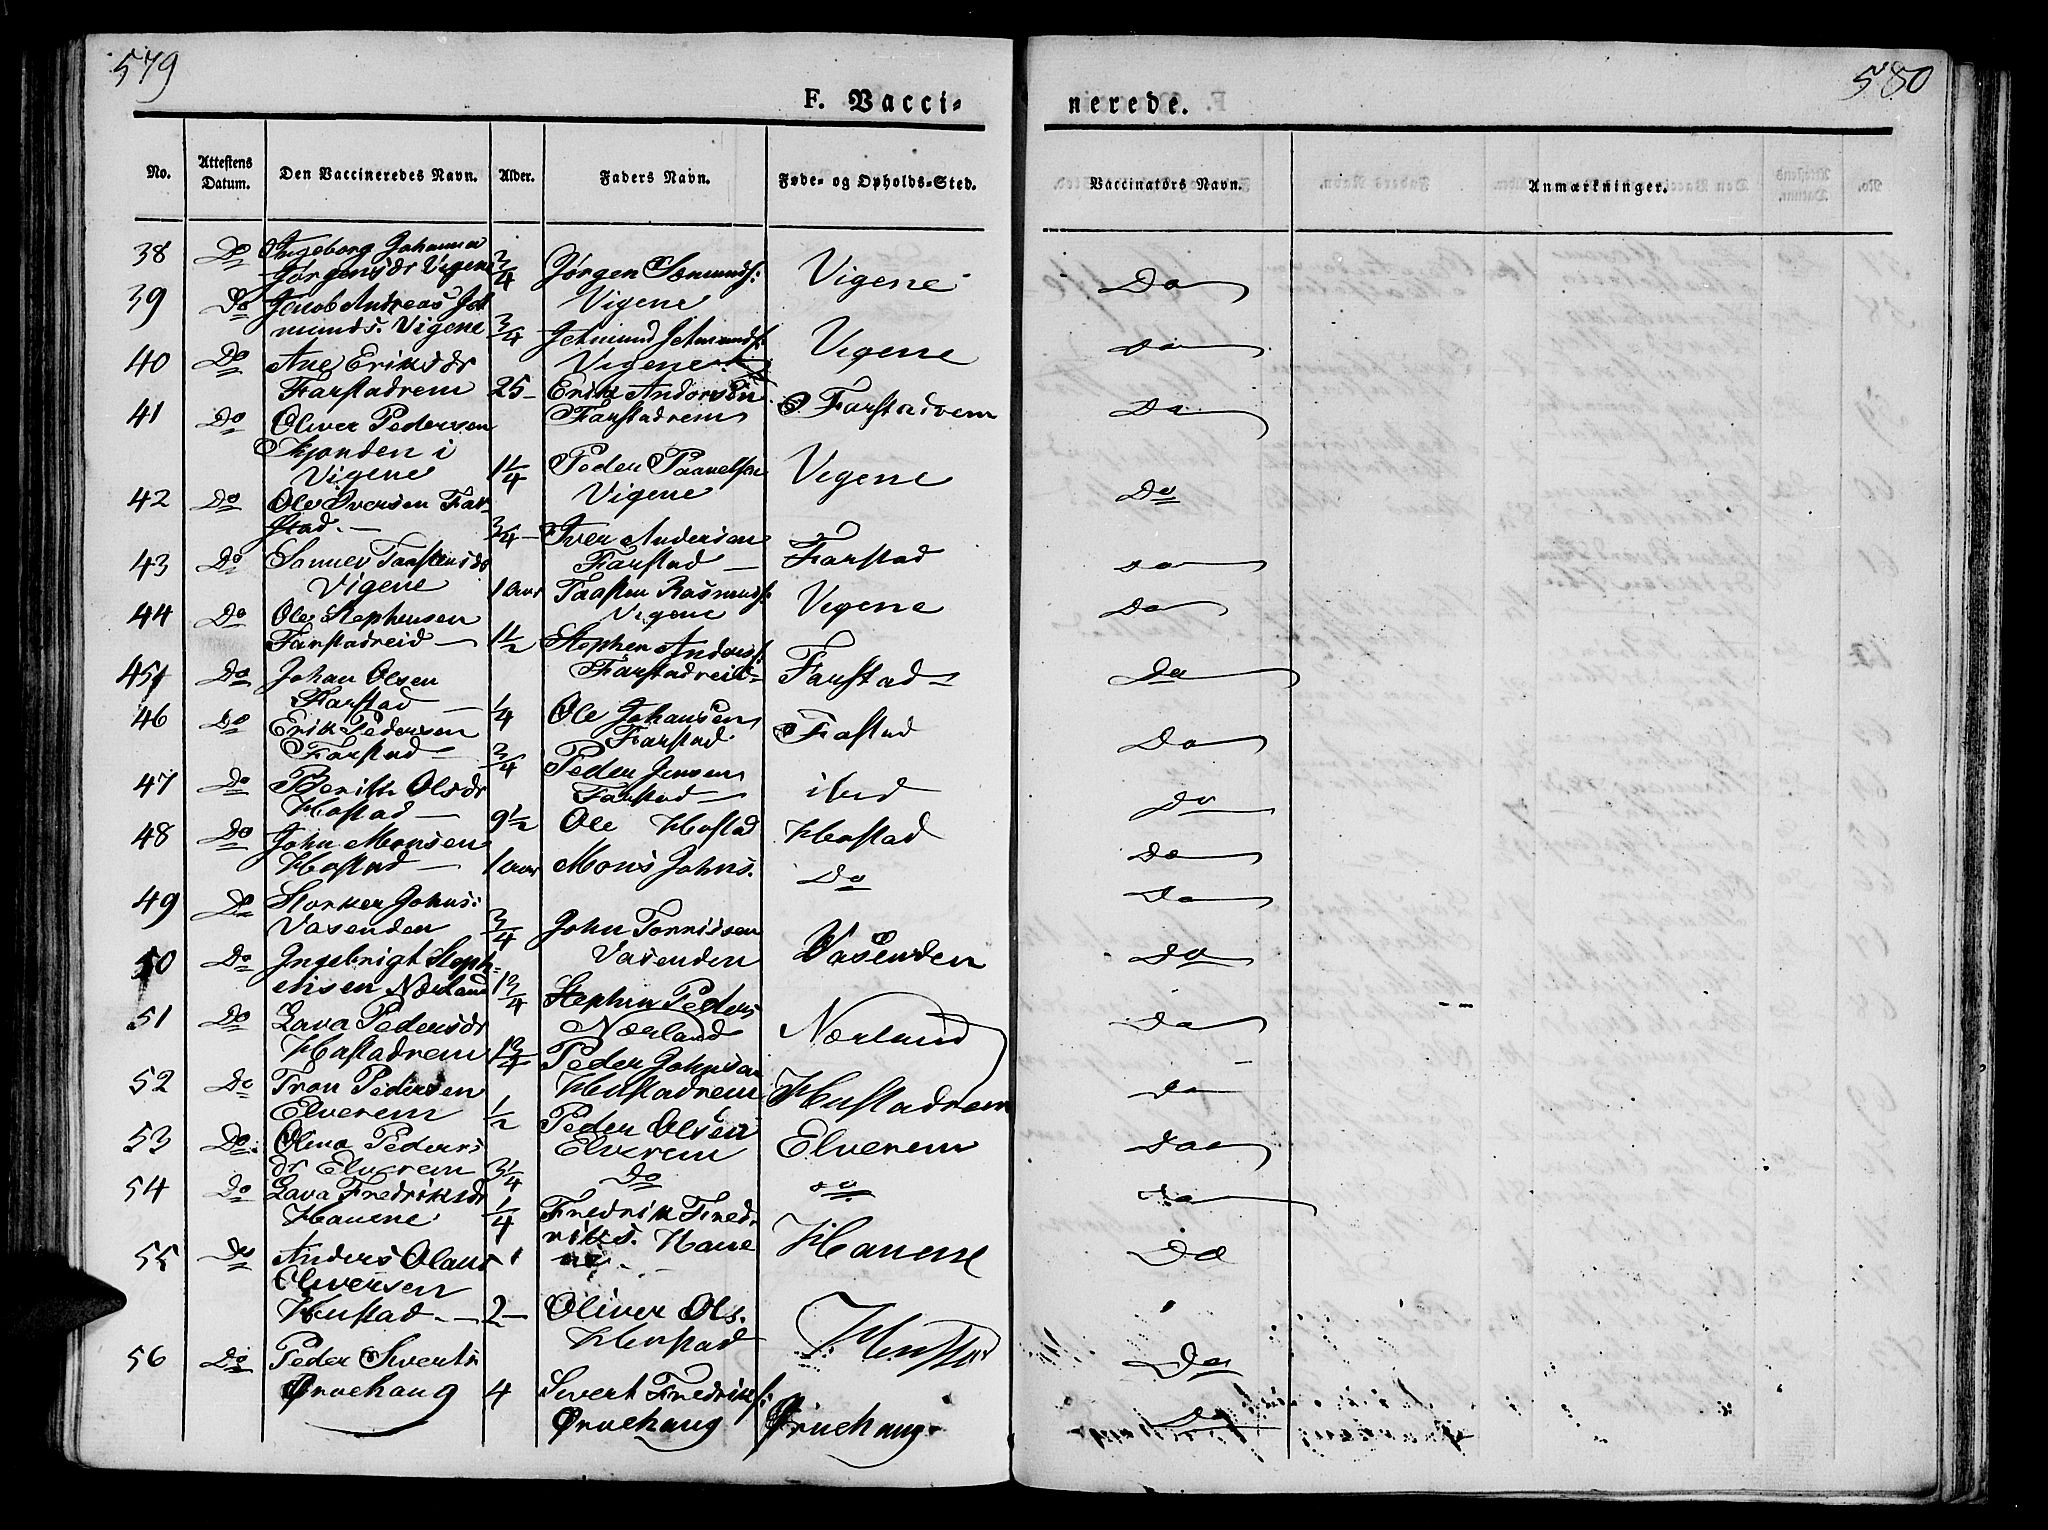 579
580
F. Vacci-
nerede.
No.
Attestens Datum.
Den Vaccineredes Navn.
Alder.
Faders Navn.
Føde- og Opholds-Sted.
Vaccinators Navn.
Anmærkninger.
38 Do Ingeborg Johanna
Jørgensdr Vigene 3/4 Jørgen Samunds: Vigene Do
Vigene
39 Do Jacob Andreas Jet
munds. Vigene 3/4 Jetmund Jetmunds: Vigene Do
Vigene
40 Do Ane Eriksdr
Farstadrem 25 Erik Andersen Farstadrem Do
Farstadrem
41 Do Oliver Pedersen
i
Vigene 1 1/4 Peder Vigene Do
Vigene
42 Do Ole Iversen Far-
stad 3/4 Iver Andersen Farstad Do
Farstad
43 Do
Vigene 1 aar Rasmuds: Vigene Do
Vigene
44 Do Ole Stephensen
Farstadreid 1 1/2 Stephen Anders: Farstad Do
Farstadreid
45 Do Johan Olsen
Farstad 1/4 Ole Johansen Fastad Do
Farstad
46 Do Erik Pedersen
Farstad 3/4 Peder Jensen ibid Do
Farstad
47 Do Berith Olsdr
Hostad 9 1/2 Ole Hostad Hostad Do
48 Do John Monsen
Hostad 1 aar Mons Johns. Do Do
49 Do Storker Johns:
Vasenden 3/4 John Vasenden Do
Vasenden
50 Do Ingebrigt Steph-
ensen Nærland 1 3/4 Stephen Peders Nærland Do
Nærland
51 Do Lava Pedersdr
Hustadrem 1 3/4 Peder Johnsen Hustadrem Do
Hustadrem
52 Do Tron Pedersen
Elverem 1/2 Peder Olsen Elverem Do
Elverem
53 Do. Olina Peders
dr Elverem 3 1/4 Do Do Do
54 Do Lava Fredriksdr
Havene 1/4 Fredrik Fred Havene Do
riks. Have
ne
55 Do Anders Olaus
Oliversen
Hustad 2 Oliver Ols. Hustad Do
Hustad
56 Do Peder Siverts
Ørnehaug 4 Sivert Fredriks: Ørnehaug Do
Ørnehaug